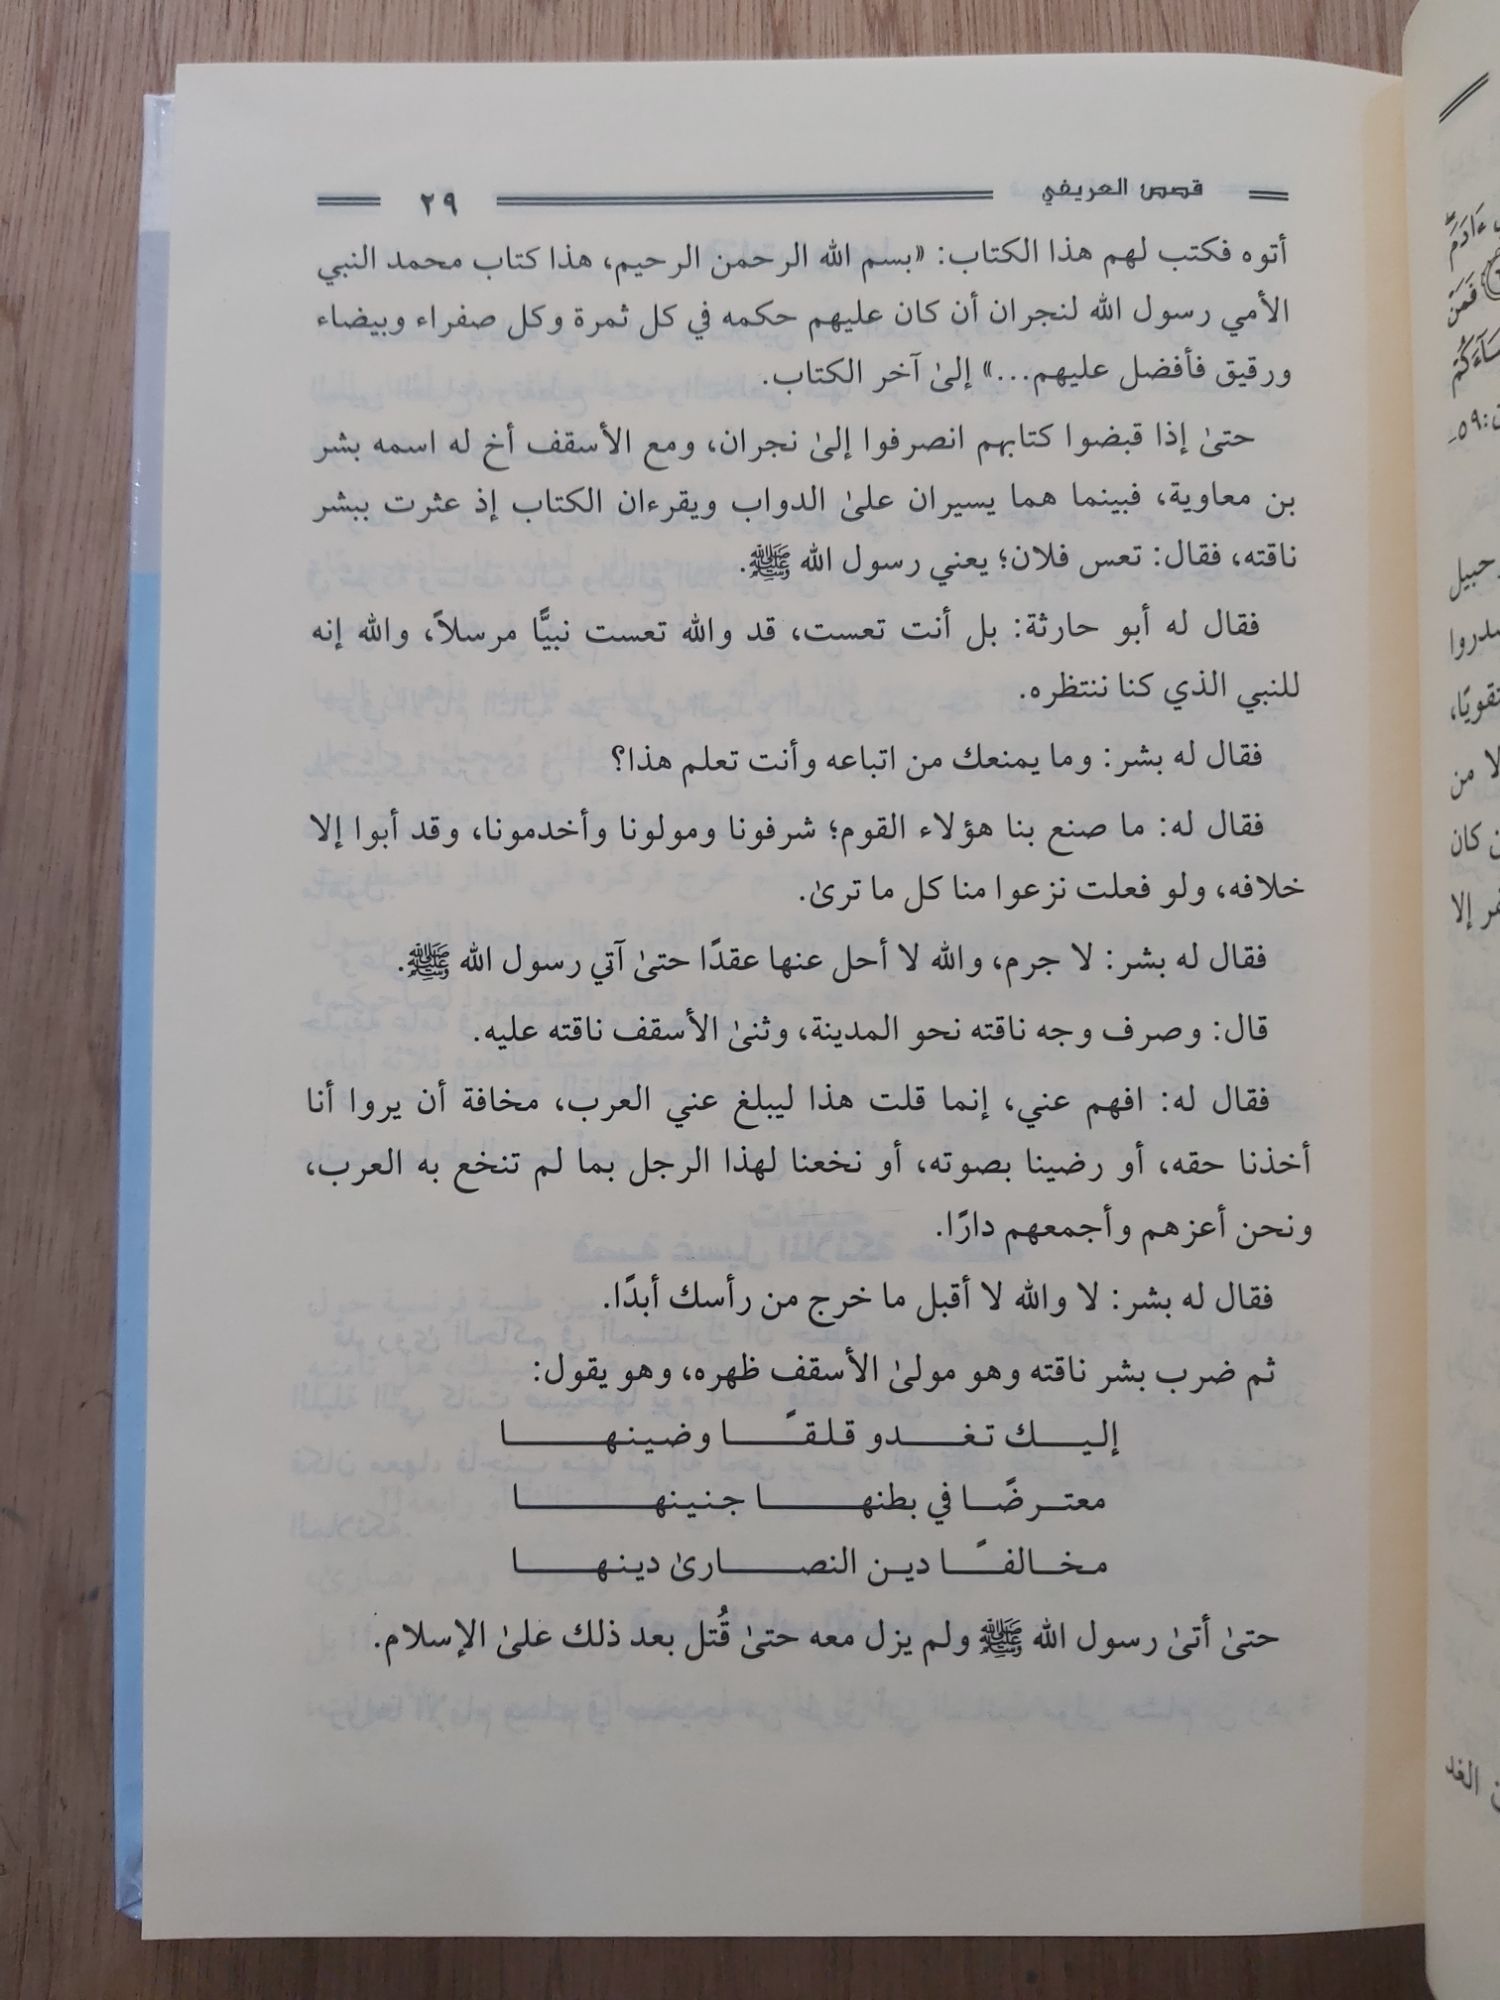 قصص العريفي ٢٩
أتوه فكتب لهم هذا الكتاب: «بسم الله الرحمن الرحيم، هذا كتاب محمد النبي
الأمي رسول الله لنجران أن كان عليهم حكمه في كل ثمرة وكل صفراء وبيضاء
ورقيق فأفضل عليهم...» إلىٰ آخر الكتاب.
حتىٰ إذا قبضوا كتابهم انصرفوا إلىٰ نجران، ومع الأسقف أخ له اسمه بشر
بن معاوية، فبينما هما يسيران علىٰ الدواب ويقرءان الكتاب إذ عثرت ببشر
ناقته، فقال: تعس فلان؛ يعني رسول الله ﷺ.
فقال له أبو حارثة: بل أنت تعست، قد والله تعست نبيًّا مرسلاً، والله إنه
للنبي الذي كنا ننتظره.
فقال له بشر: وما يمنعك من اتباعه وأنت تعلم هذا؟
فقال له: ما صنع بنا هؤلاء القوم؛ شرفونا ومولونا وأخدمونا، وقد أبوا إلا
خلافه، ولو فعلت نزعوا منا كل ما ترىٰ.
فقال له بشر: لا جرم، والله لا أحل عنها عقدًا حتىٰ آتي رسول الله ﷺ.
قال: وصرف وجه ناقته نحو المدينة، وثنىٰ الأسقف ناقته عليه.
فقال له: افهم عني، إنما قلت هذا ليبلغ عني العرب، مخافة أن يروا أنا
أخذنا حقه، أو رضينا بصوته، أو نخعنا لهذا الرجل بما لم تنخع به العرب،
ونحن أعزهم وأجمعهم دارًا.
فقال له بشر: لا والله لا أقبل ما خرج من رأسك أبدًا.
ثم ضرب بشر ناقته وهو مولىٰ الأسقف ظهره، وهو يقول:
إليـك تغـدو قلقًـا وضينهـا
معترضًـا في بطنهـا جنينهـا
مخالفًـا ديـن النصـارىٰ دينهـا
حتىٰ أتىٰ رسول الله ﷺ ولم يزل معه حتىٰ قُتل بعد ذلك علىٰ الإسلام.